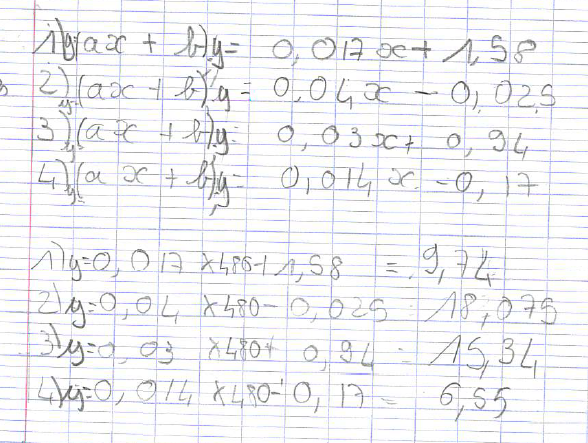 1) y(ax + b) y = 0,017x + 1,58
2) y=(ax + b) y = 0,04x - 0,025
3) y(ax + b) y = 0,03x + 0,94
4) y=(ax + b) y = 0,014x - 0,17
1) y=0,017 x480+1,58 = 9,74
2) y=0,04 x480-0,025 18,075
3) y=0,03 x480+ 0,94 = 15,34
4) y=0,014 x480-0,17 = 6,55